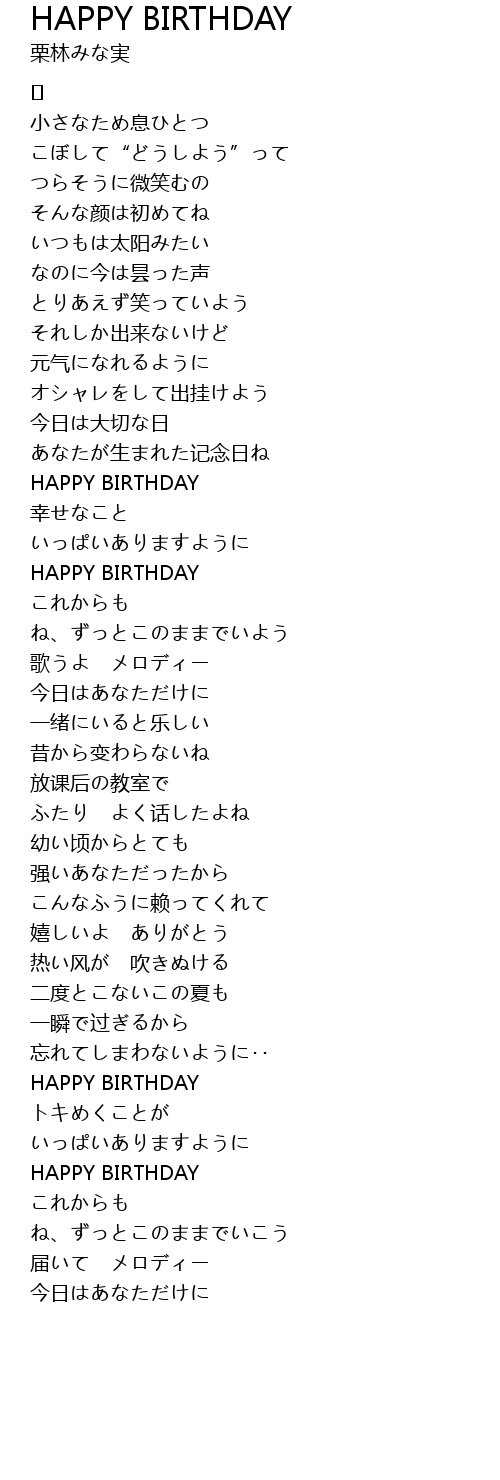 HAPPY BIRTHDAY
栗林みな実
小さなため息ひとつ
こぼして“どうしよう”って
つらそうに微笑むの
そんな颜は初めてね
いつもは太阳みたい
なのに今は昙った声
とりあえず笑っていよう
それしか出来ないけど
元气になれるように
オシャレをして出挂けよう
今日は大切な日
あなたが生まれた记念日ね
HAPPY BIRTHDAY
幸せなこと
いっぱいありますように
HAPPY BIRTHDAY
これからも
ね、ずっとこのままでいよう
歌うよ　メロディー
今日はあなただけに
一绪にいると乐しい
昔から变わらないね
放课后の教室で
ふたり　よく话したよね
幼い顷からとても
强いあなただったから
こんなふうに赖ってくれて
嬉しいよ　ありがとう
热い风が　吹きぬける
二度とこないこの夏も
一瞬で过ぎるから
忘れてしまわないように‥
HAPPY BIRTHDAY
トキめくことが
いっぱいありますように
HAPPY BIRTHDAY
これからも
ね、ずっとこのままでいこう
届いて　メロディー
今日はあなただけに